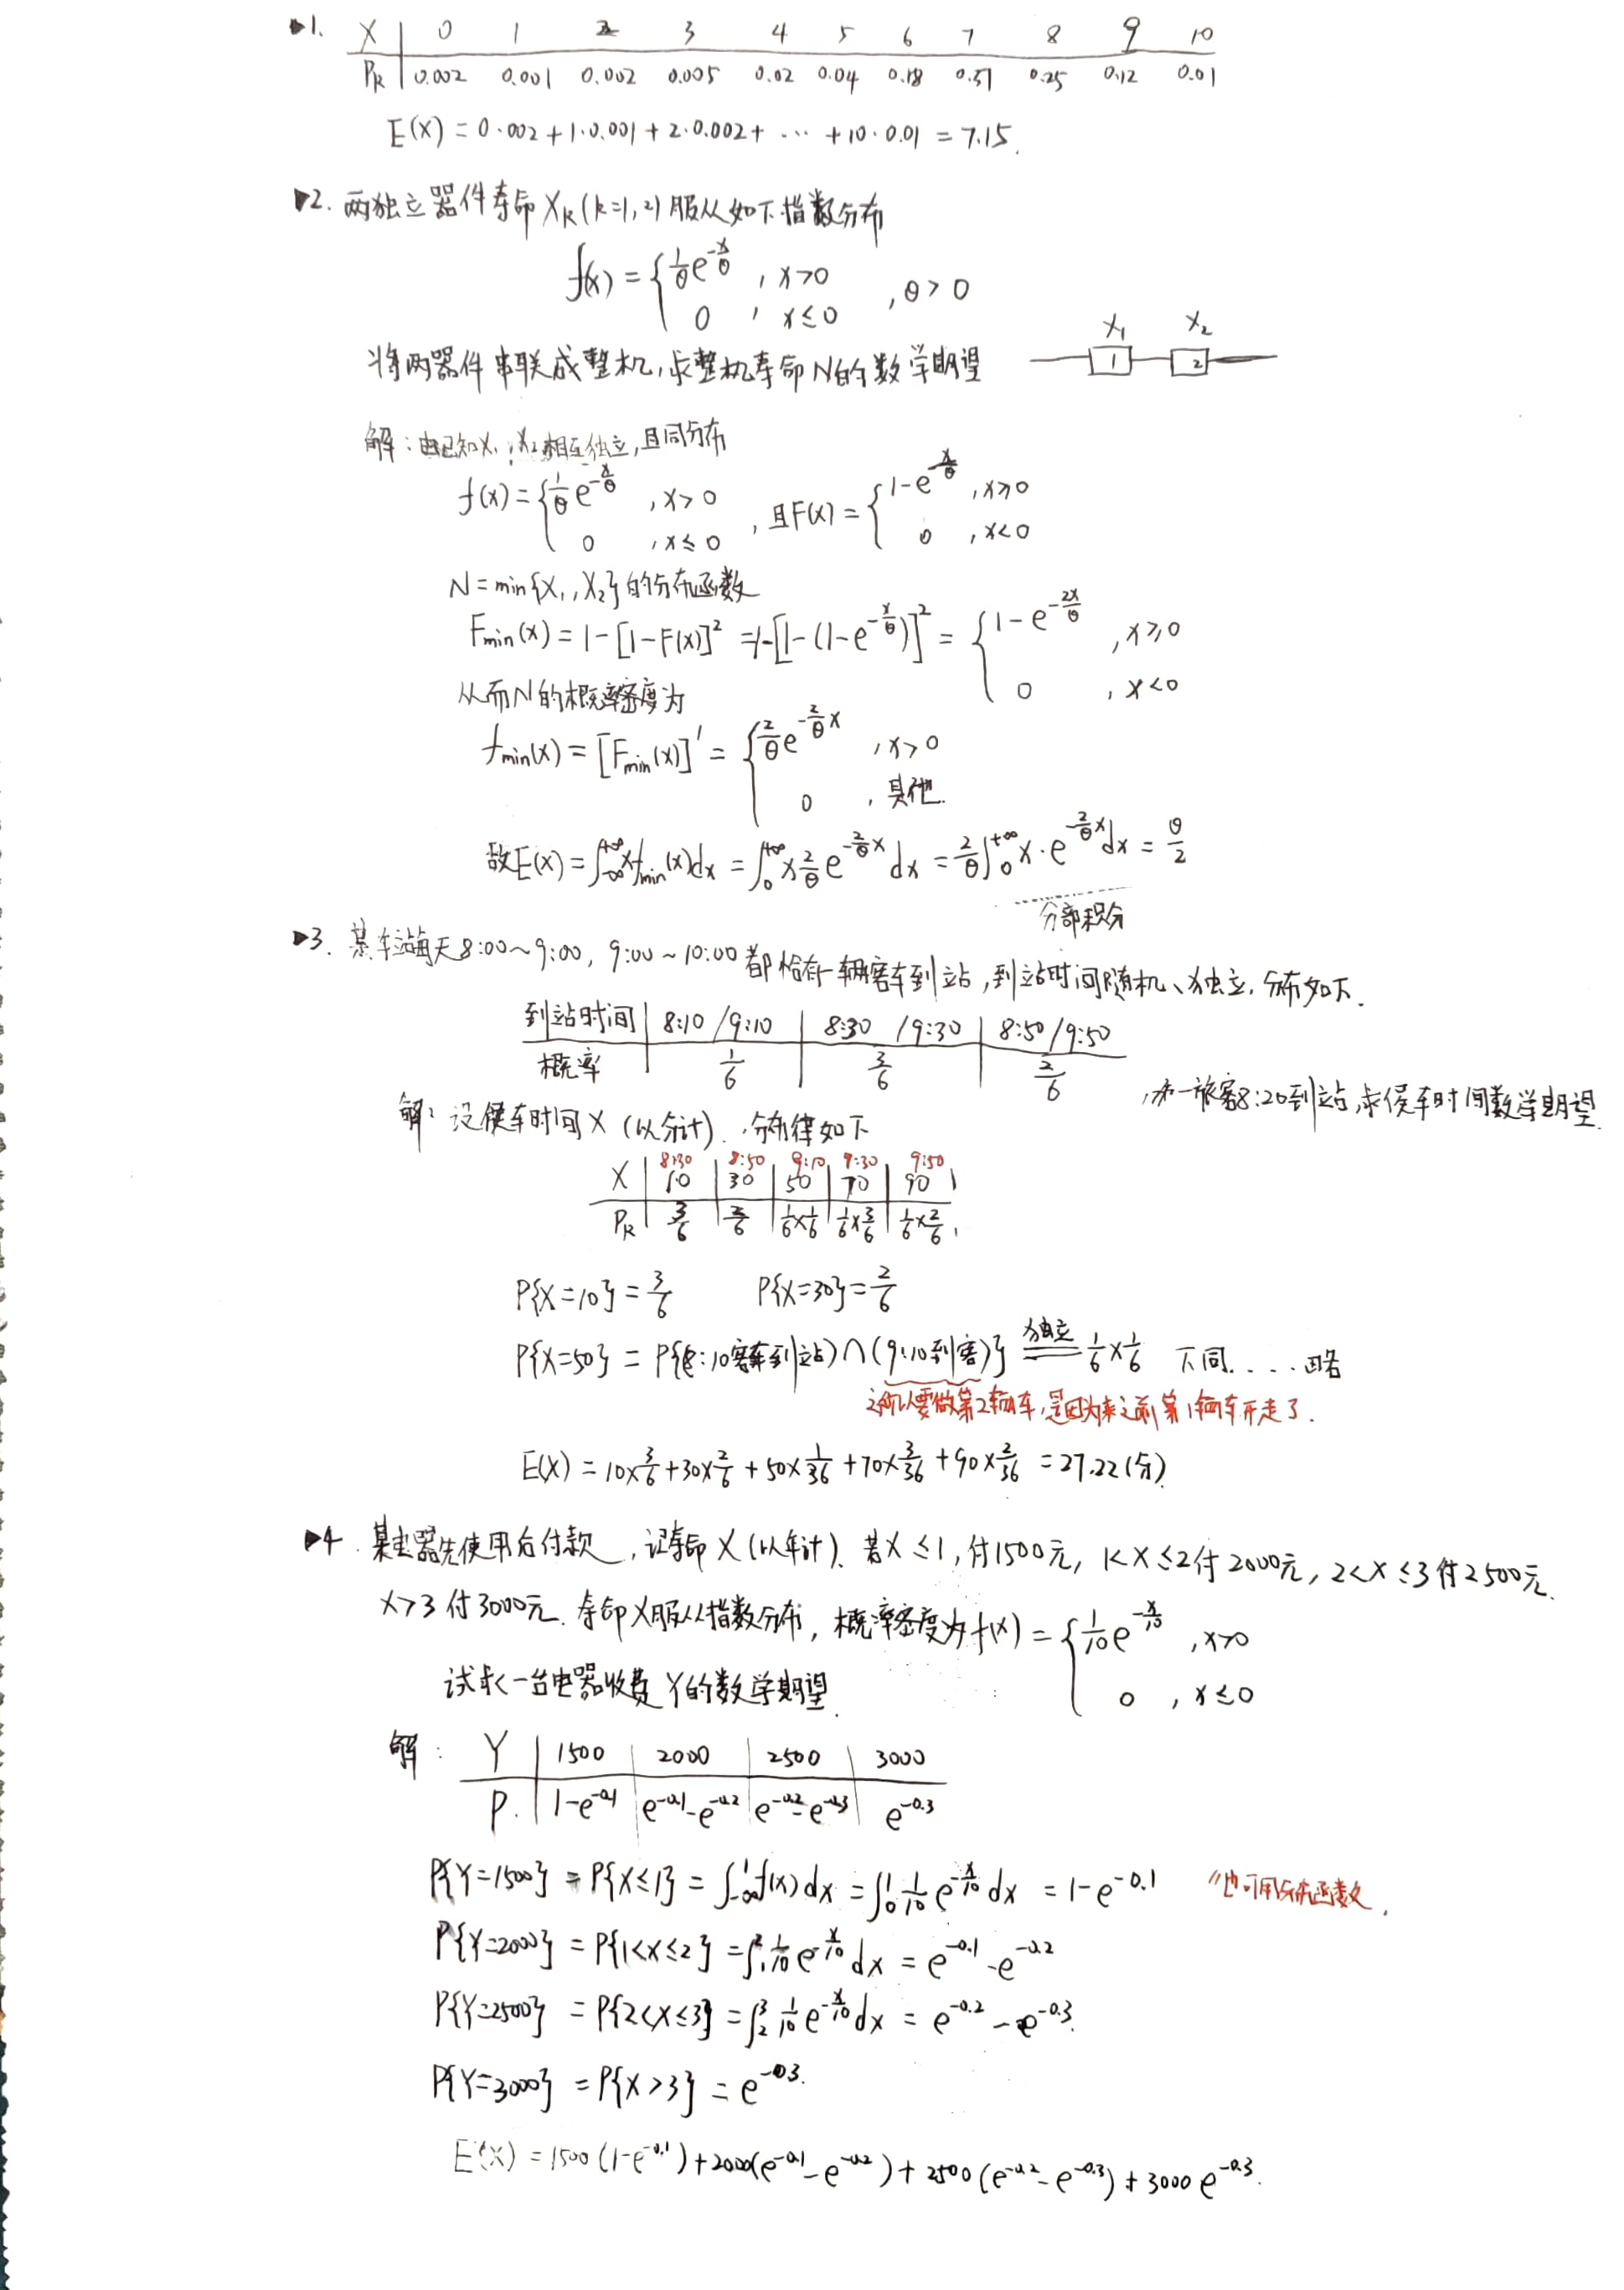 ▶1. X | 0 1 2 3 4 5 6 7 8 9 10
Pk | 0.002 0.001 0.002 0.005 0.02 0.04 0.18 0.37 0.25 0.12 0.01
E(X) = 0·002 + 1·0.001 + 2·0.002 + ··· + 10·0.01 = 7.15.
▶2. 两独立器件寿命 Xk (k=1,2) 服从如下指数分布
f(x) = { 1/θ e^{-x/θ} , x>0 ; 0 , x≤0 , θ>0
将两器件串联成整机,求整机寿命N的数学期望
X1 X2
1 2
解:由已知X1,X2相互独立,且同分布
f(x) = { 1/θ e^{-x/θ} , x>0 ; 0 , x≤0 , 且F(x) = { 1-e^{-x/θ} , x≥0 ; 0 , x<0
N = min{X1,X2}的分布函数
Fmin(x) = 1-[1-F(x)]² = 1-[1-(1-e^{-x/θ})]² = { 1-e^{-2x/θ} , x≥0 ; 0 , x<0
从而N的概率密度为
fmin(x) = [Fmin(x)]' = { 2/θ e^{-2/θ x} , x>0 ; 0 , 其他.
故E(x) = ∫_{-∞}^{+∞} x fmin(x)dx = ∫_0^{+∞} x 2/θ e^{-2/θ x} dx = 2/θ ∫_0^{+∞} x·e^{-2/θ x} dx = θ/2
分部积分
▶3. 某车站每天8:00~9:00, 9:00~10:00 都恰有一辆客车到站,到站时间随机、独立.分布如下.
到站时间 | 8:10/9:10 | 8:30/9:30 | 8:50/9:50
概率 | 1/6 | 3/6 | 2/6
,求一旅客8:20到站,求候车时间数学期望.
解: 设候车时间X (以分计).,分布律如下
8:30 8:50 9:10 9:30 9:50
X | 10 | 30 | 50 | 70 | 90
Pk | 3/6 | 2/6 | 1/6×1/6 | 1/6×3/6 | 1/6×2/6.
P{X=10} = 3/6 P{X=30} = 2/6
P{X=50} = P{(8:10客车到站)∩(9:10到客)} 独立= 1/6×1/6 下同....略
之所以要做第2辆车,是因为来之前第1辆车开走了.
E(X) = 10×3/6 + 30×2/6 + 50×1/36 + 70×3/36 + 90×2/36 = 27.22(分).
▶4. 某电器先使用后付款,记寿命X(以年计). 若X≤1,付1500元, 1<X≤2付2000元, 2<X≤3付2500元.
X>3付3000元. 寿命X服从指数分布, 概率密度为f(x) = { 1/10 e^{-x/10} , x>0 ; 0 , x≤0
试求一台电器收费Y的数学期望.
解: Y | 1500 | 2000 | 2500 | 3000
P. | 1-e^{-0.1} | e^{-0.1}-e^{-0.2} | e^{-0.2}-e^{-0.3} | e^{-0.3}
P{Y=1500} = P{X≤1} = ∫_{-∞}^1 f(x)dx = ∫_0^1 1/10 e^{-x/10} dx = 1-e^{-0.1} //也可用分布函数.
P{Y=2000} = P{1<X≤2} = ∫_1^2 1/10 e^{-x/10} dx = e^{-0.1}-e^{-0.2}
P{Y=2500} = P{2<X≤3} = ∫_2^3 1/10 e^{-x/10} dx = e^{-0.2}-e^{-0.3}.
P{Y=3000} = P{X>3} = e^{-0.3}.
E(X) = 1500(1-e^{-0.1}) + 2000(e^{-0.1}-e^{-0.2}) + 2500(e^{-0.2}-e^{-0.3}) + 3000e^{-0.3}.